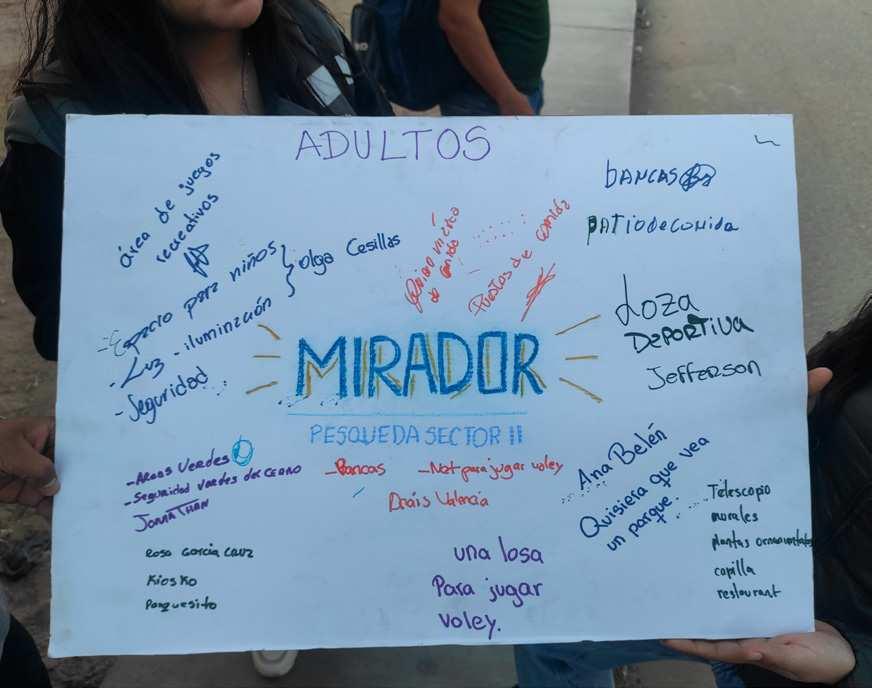 ADULTOS
área de juegos
recreativos
- Espacio para niños
- Luz - iluminación
Olga Cesillas
- Seguridad
Quiero
Puestos de comida
BANCAS
PATIO de comida
Loza
DEPORTIVA
Jefferson
MIRADOR
PESQUEDA SECTOR II
- Areas Verdes
- Seguridad Verdes del CERRO
JONATHAN
- Bancas
- Net para jugar voley
Valencia
Ana Belén
Quisiera que vea
un parque.
Rosa Garcia Cruz
Kiosko
Parquesito
una losa
Para jugar
voley.
Telescopio
morales
plantas ornamentales
capilla
restaurant